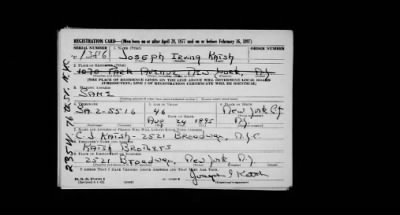 REGISTRATION CARD—(Men born on or after April 28, 1877 and on or before February 16, 1897)
SERIAL NUMBER 1. NAME (Print) ORDER NUMBER
U 1386 JOSEPH IRVING KAISH
2. PLACE OF RESIDENCE (Print)
1070 PARK AVENUE NEW YORK, N.Y.
(THE PLACE OF RESIDENCE GIVEN ON THE LINE ABOVE WILL DETERMINE LOCAL BOARD
JURISDICTION; LINE 2 OF REGISTRATION CERTIFICATE WILL BE IDENTICAL)
3. MAILING ADDRESS
SAME
4. TELEPHONE
SA 2-5516 46 NEW YORK CY
AUG 24 1895 N.Y.
7. NAME AND ADDRESS OF PERSON WHO WILL ALWAYS KNOW YOUR ADDRESS
C J KAISH - 2521 BROADWAY, N.Y.C
KAISH BROTHERS
2521 BROADWAY, NEW YORK N.Y.
I AFFIRM THAT I HAVE VERIFIED ABOVE ANSWERS AND THAT THEY ARE TRUE.
Joseph I Kaish
235 W. 76th ST. N.Y.C